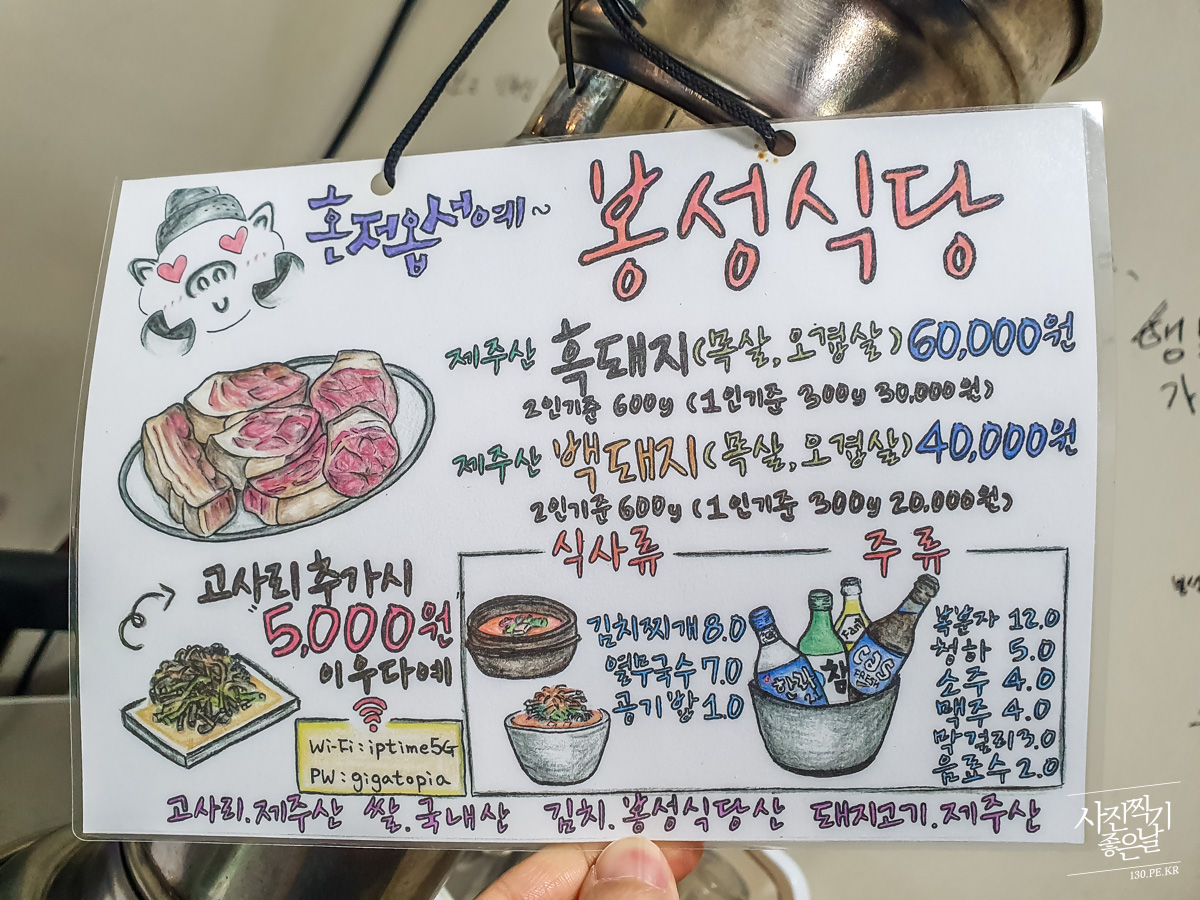 혼저옵서예~
봉성식당
제주산 흑돼지(목살,오겹살) 60,000원
2인기준 600g (1인기준 300g 30,000원)
제주산 백돼지(목살,오겹살) 40,000원
2인기준 600g (1인기준 300g 20.000원)
고사리 추가시
5,000원
이우다예
Wi-Fi : iptime5G
PW : gigatopia
식사류
김치찌개 8.0
열무국수 7.0
공기밥 1.0
주류
한라
참
Fan
CASS
FRESH
복분자 12.0
청하 5.0
소주 4.0
맥주 4.0
막걸리 3.0
음료수 2.0
고사리.제주산 쌀.국내산 김치.봉성식당산 돼지고기.제주산
사진찍기
좋은날
130.PE.KR